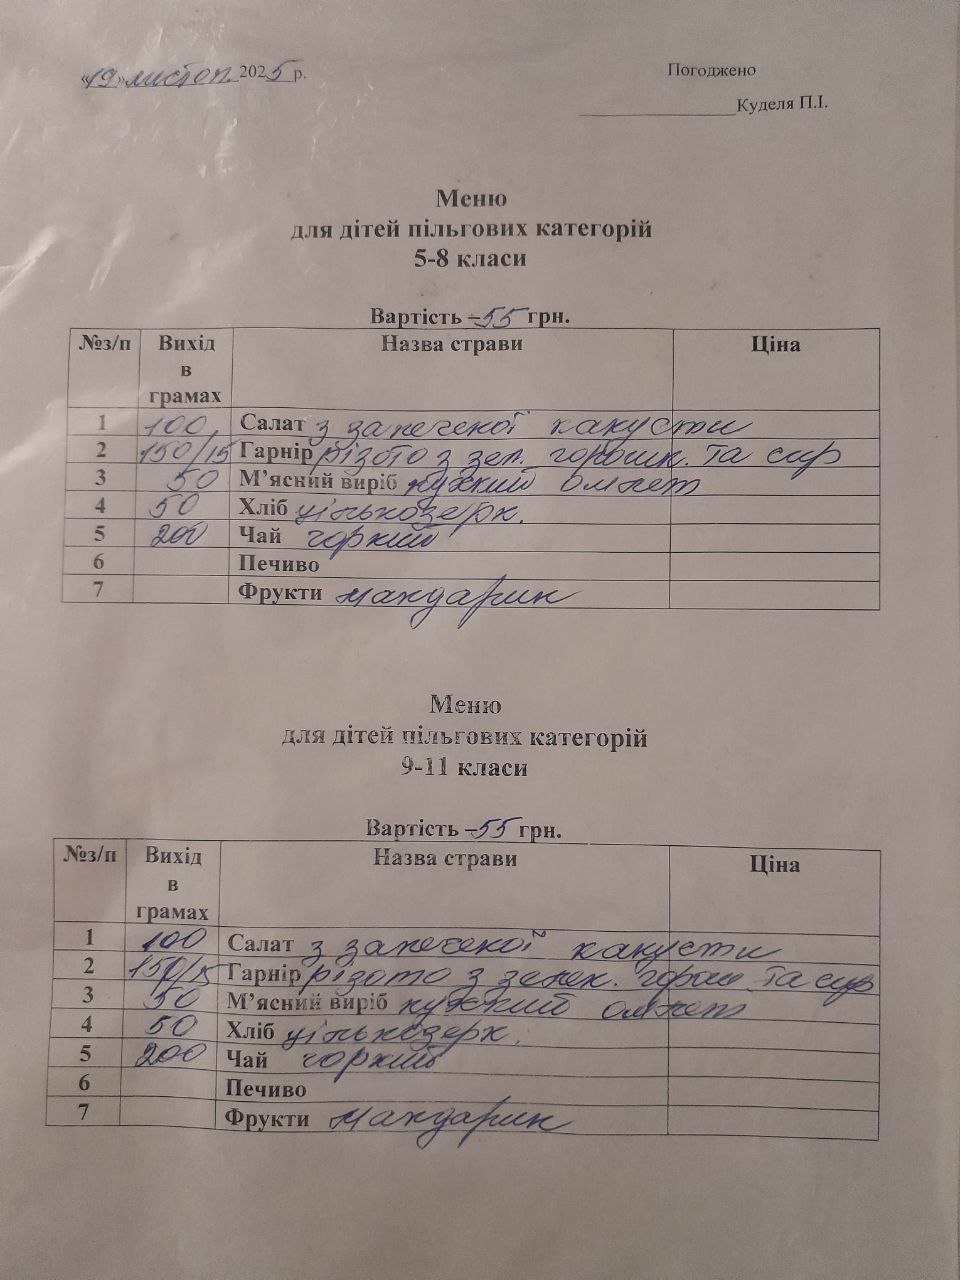 «19» листоп 2025 р.
Погоджено
Куделя П.І.
Меню
для дітей пільгових категорій
5-8 класи
Вартість – 55 грн.
№з/п Вихід в грамах Назва страви Ціна
1 100 Салат з запеченої капусти
2 150/15 Гарнір різото з зел. горошк. та сир
3 50 М’ясний виріб пухкий омлет
4 50 Хліб цільнозерн.
5 200 Чай чорний
6 Печиво
7 Фрукти мандарин
Меню
для дітей пільгових категорій
9-11 класи
Вартість – 55 грн.
№з/п Вихід в грамах Назва страви Ціна
1 100 Салат з запеченої капусти
2 150/15 Гарнір різото з зелен. горош. та сир
3 50 М’ясний виріб пухкий омлет
4 50 Хліб цільнозерн.
5 200 Чай чорний
6 Печиво
7 Фрукти мандарин